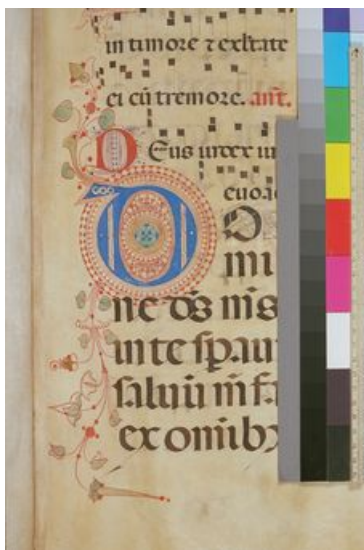 in timore ⁊ exltate
ei cū tremore. ant.
Deus iudex iu
euoa
DO
mi
ne ds ms
in te spaui
saluū m fa
ex omibꝫ